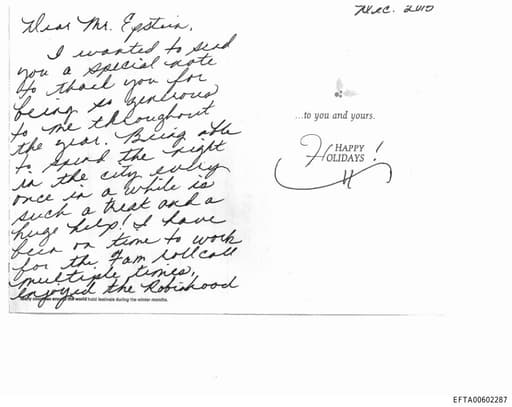 Dear Mr. Epstein,
I wanted to send
you a special note
to thank you for
being so generous
to me throughout
the year. Being able
to spend the night
in the city every
once in a while is
such a treat and a
huge help! I have
been on time to work
for the 7am rollcall
multiple times,
enjoyed the Robinhood
the world hold festivals during the winter months.
Dec. 2010
...to you and yours.
HAPPY
HOLIDAYS!
EFTA00602287